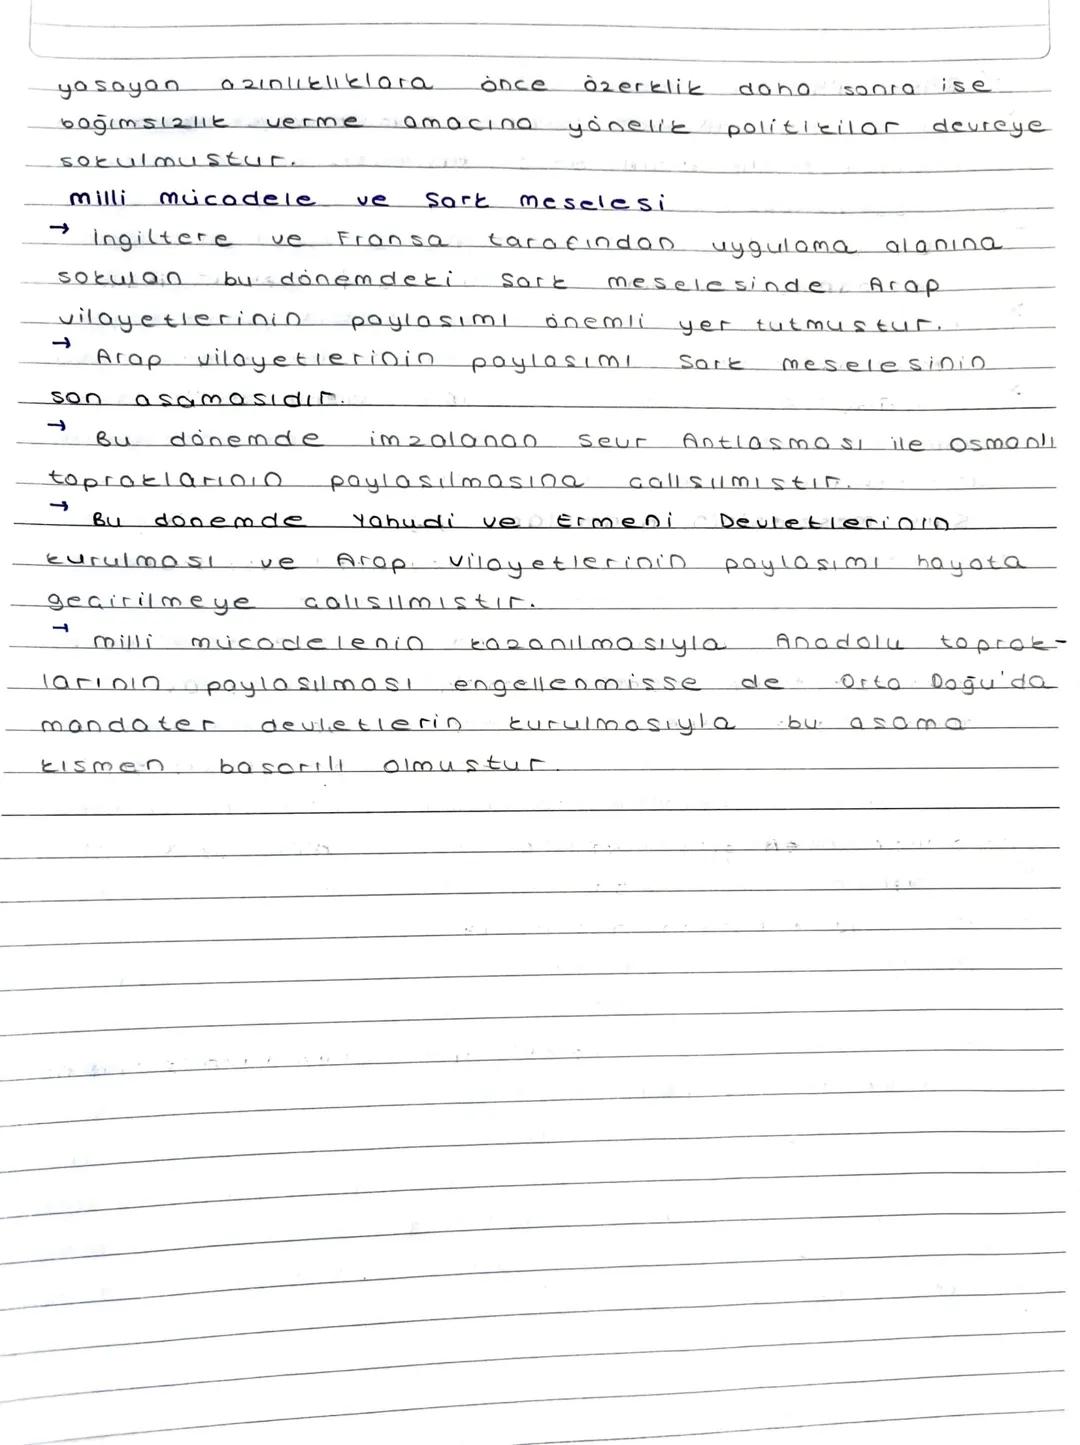 yasayan azınlıklıklara önce özerklik daha sonra ise
bağımsızlık verme amacına yönelik politikilar devreye
sokulmustur.
milli mücadele ve Sark meselesi
→ ingiltere ve Fransa tarafından uygulama alanına
sokulan bu dönemdeki Sark meselesinde Arap
vilayetlerinin paylasımı önemli yer tutmustur.
→ Arap vilayetlerinin paylasımı Sark meselesinin
son asamasıdır.
→ Bu dönemde imzalanan Seur Antlasması ile Osmanlı
topraklarının paylasılmasına calısılmıstır.
→ Bu donemde Yahudi ve Ermeni Devletlerinin
kurulması ve Arap vilayetlerinin paylasımı hayata
gecirilmeye calısılmıstır.
→ milli mücadelenin kazanılmasıyla Anadolu toprak-
larının paylasılması engellenmisse de Orta Doğu'da
mandater devletlerin kurulmasıyla bu asama
kısmen basarılı olmustur.